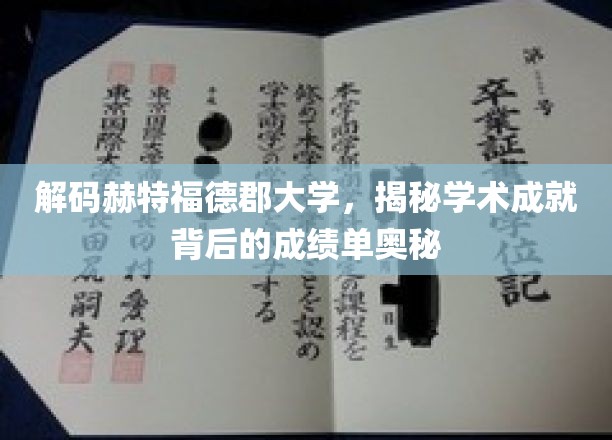 解码赫特福德郡大学，揭秘学术成就
背后的成绩单奥秘
第 号
卒業証 学位記
日生
本学商学部 定の課程を
修めて本学 ことを認め
学士(商学)の する
平成
東京国際大学 田村愛理
東京国際大 長田尻嗣夫